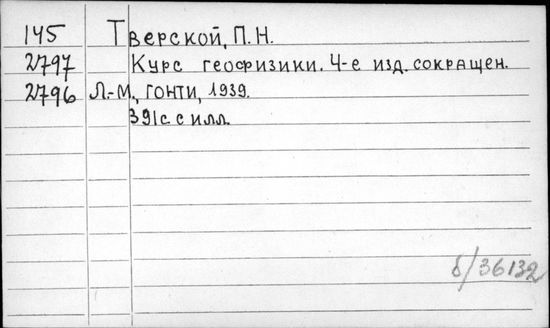 145 Тверской, П.Н.
2797 Курс геофизики. 4-е изд. сокращен.
2796 Л.-М., ГОНТИ, 1939.
391с. с илл.
б/36132